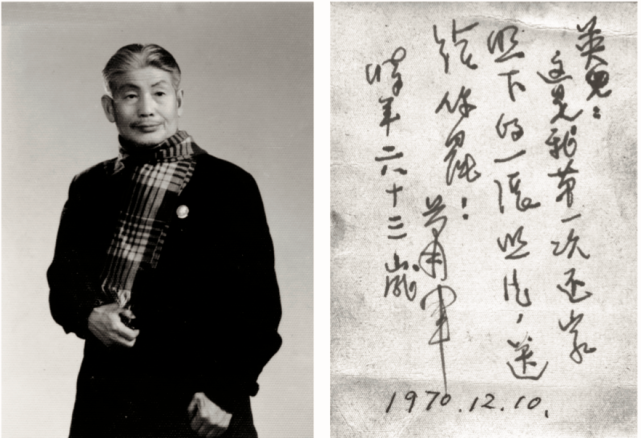 英儿：
这是我第一次还家
照下的一张照片，送
给你罷！
萧军
时年六十三岁
1970.12.10.